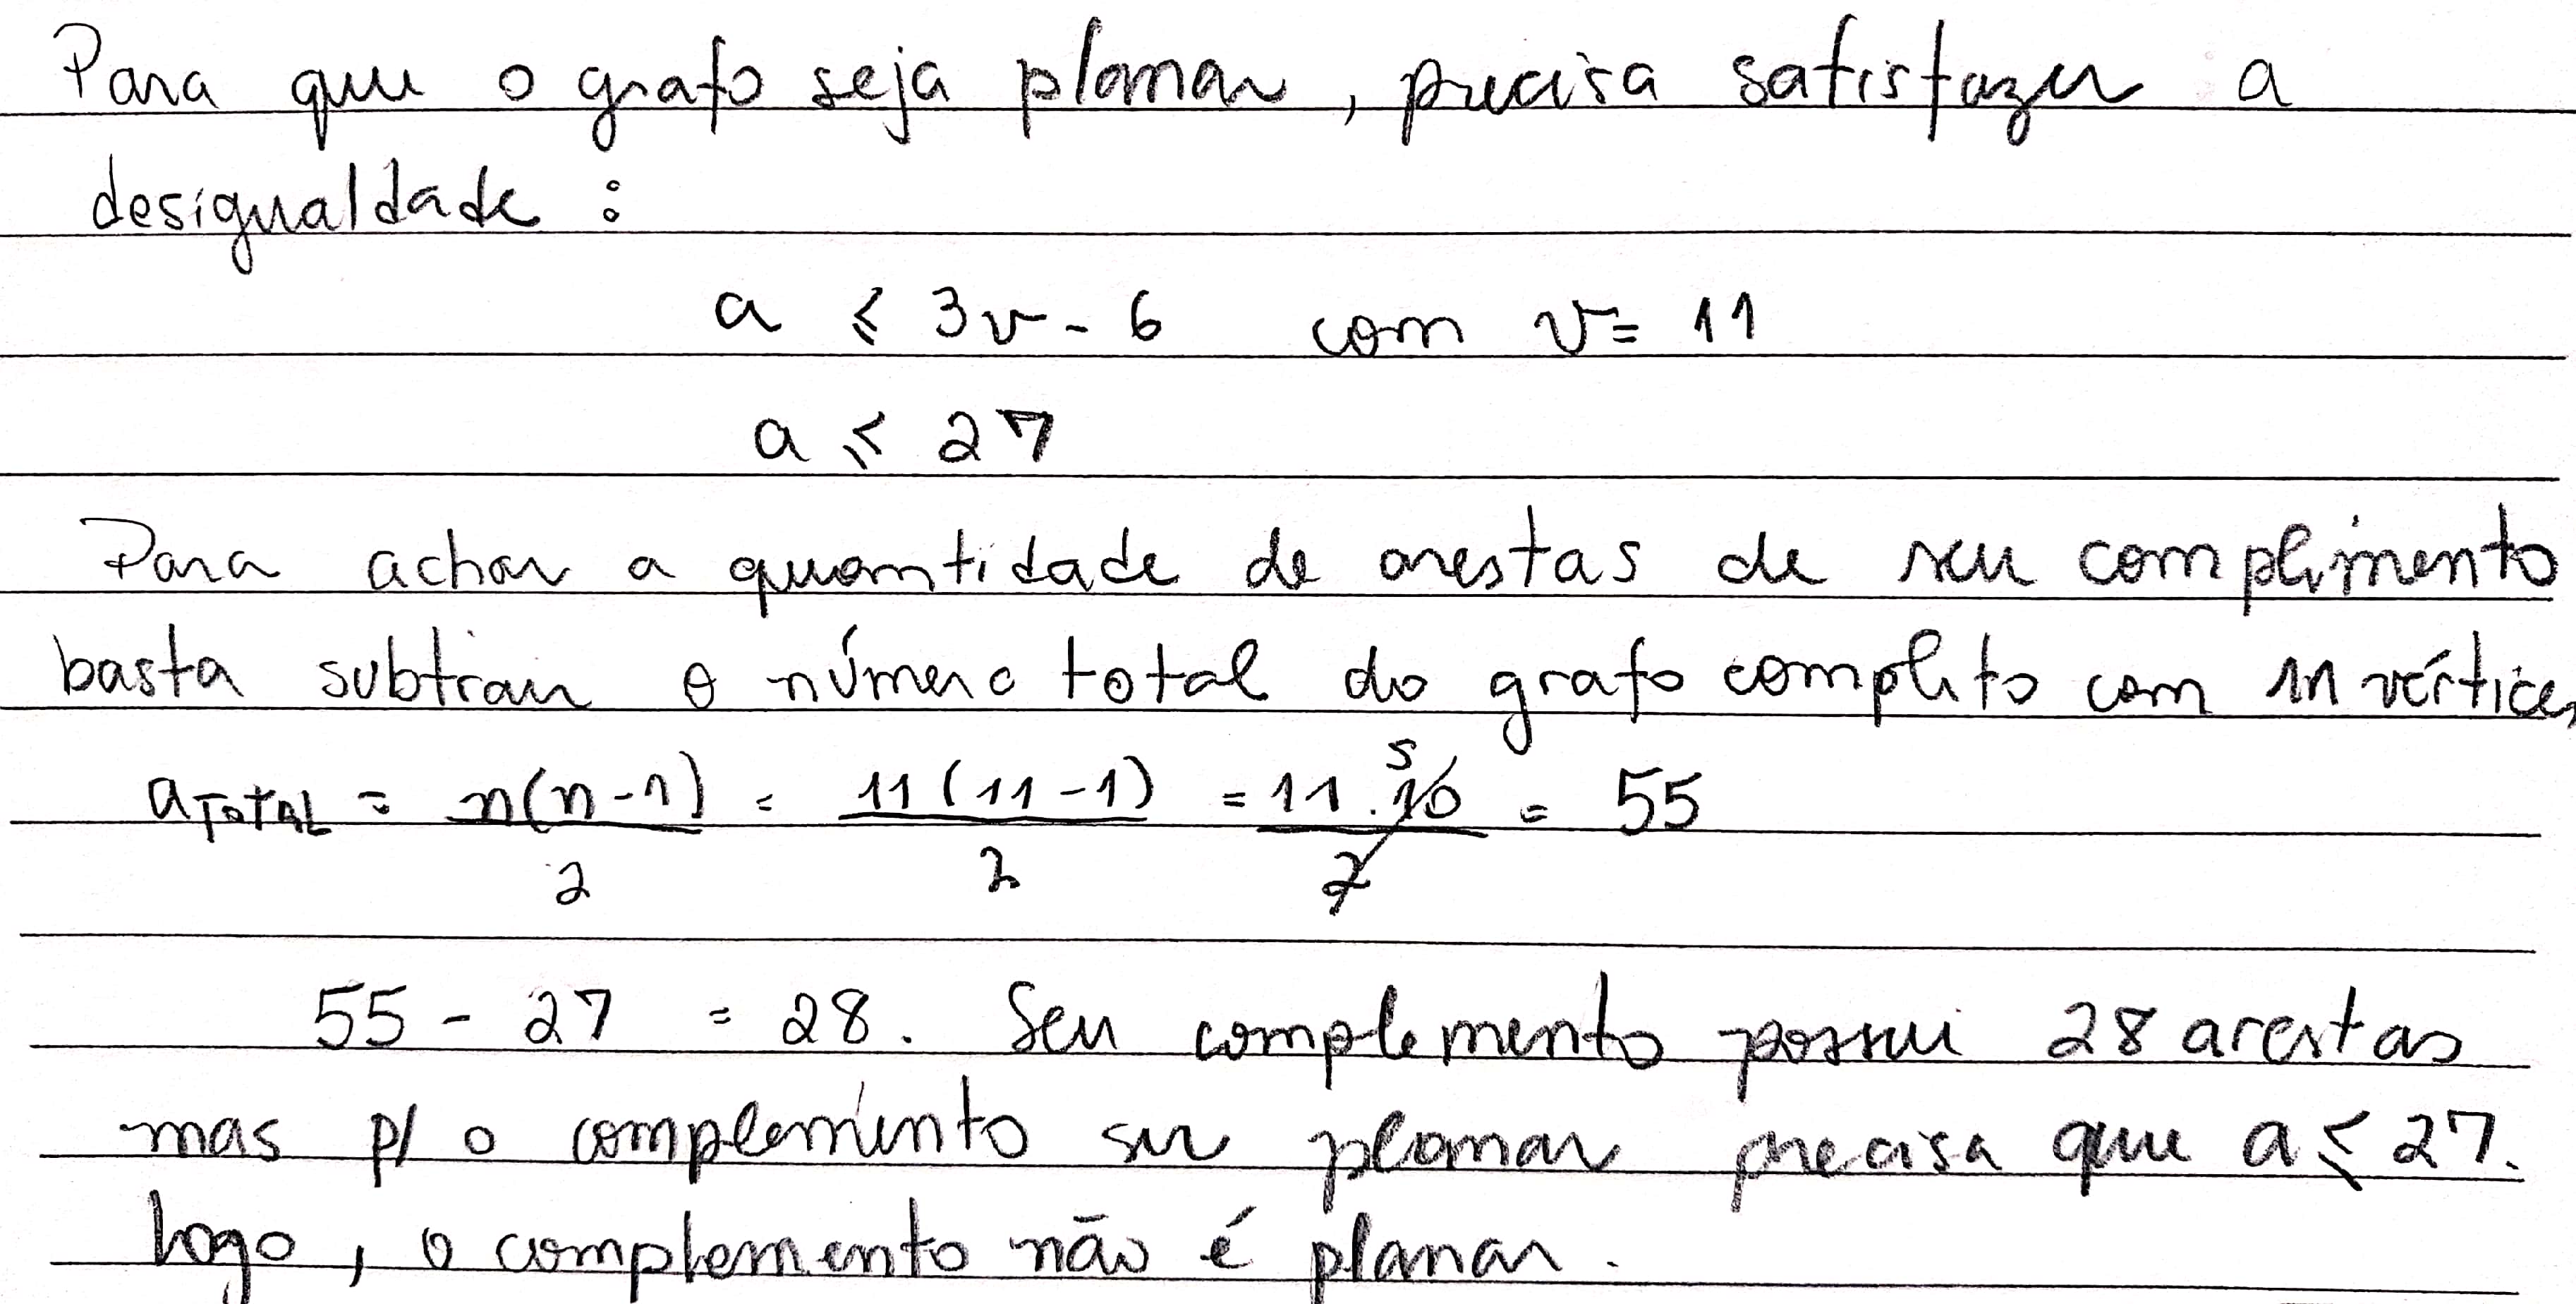 Para que o grafo seja planar, precisa satisfazer a
desigualdade :
a ⩽ 3v - 6 com v = 11
a ⩽ 27
Para achar a quantidade de arestas de seu complimento
basta subtrair o número total do grafo completo com 11 vértices
a TOTAL = n(n-1)/2 = 11(11-1)/2 = 11.10/2 5 = 55
55 - 27 = 28. Seu complemento possui 28 arestas
mas p/ o complemento ser planar precisa que a ⩽ 27.
Logo, o complemento não é planar.